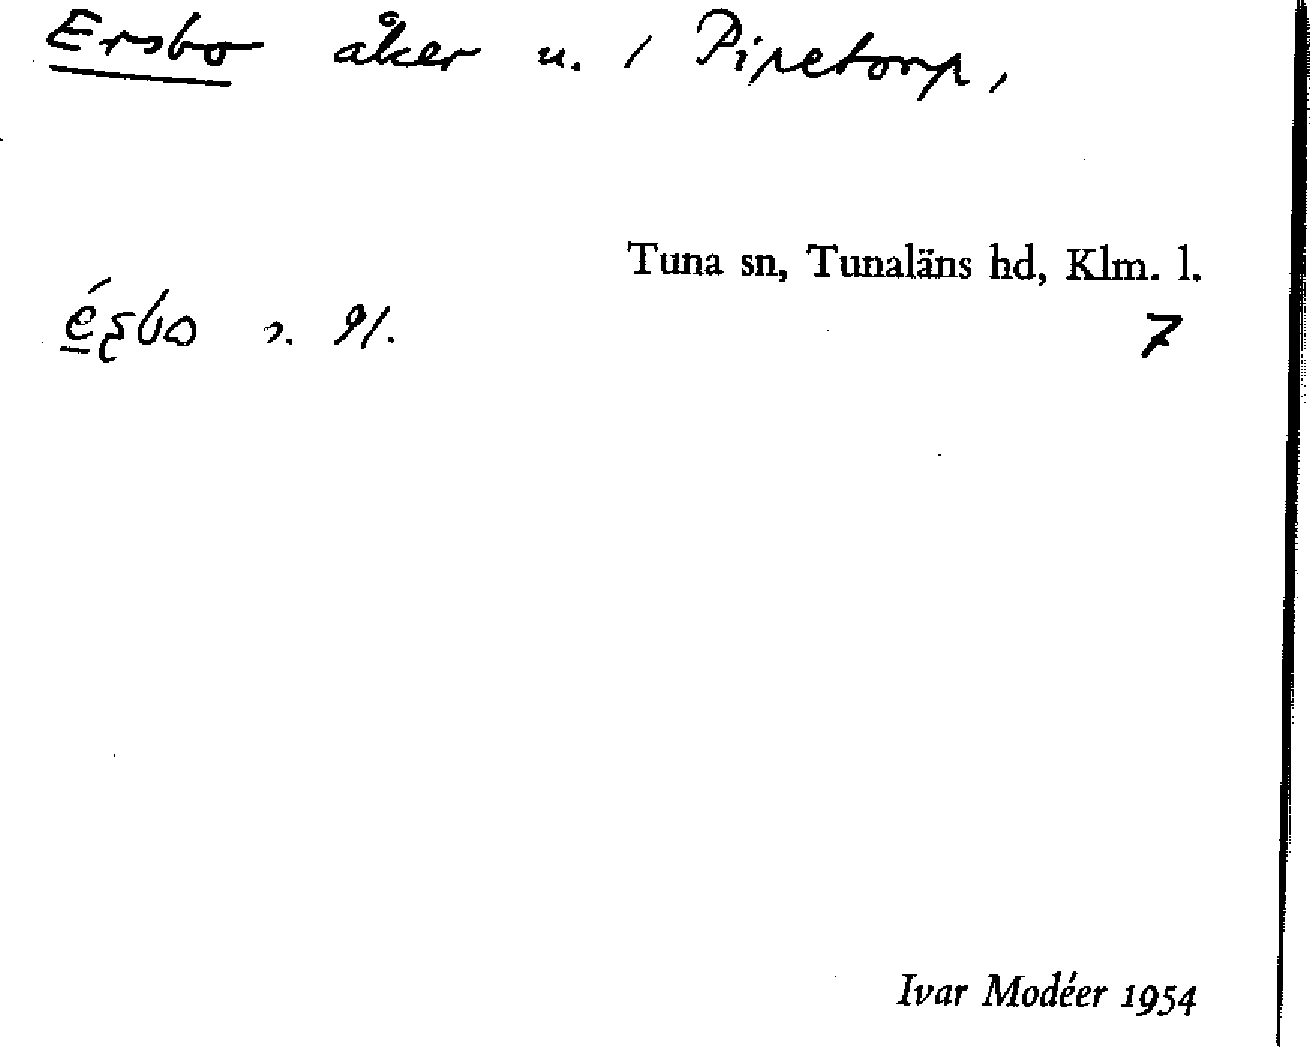 Ersbo åker u. / Pipetorp,
Tuna sn, Tunaläns hd, Klm. l.
7
Ivar Modéer 1954